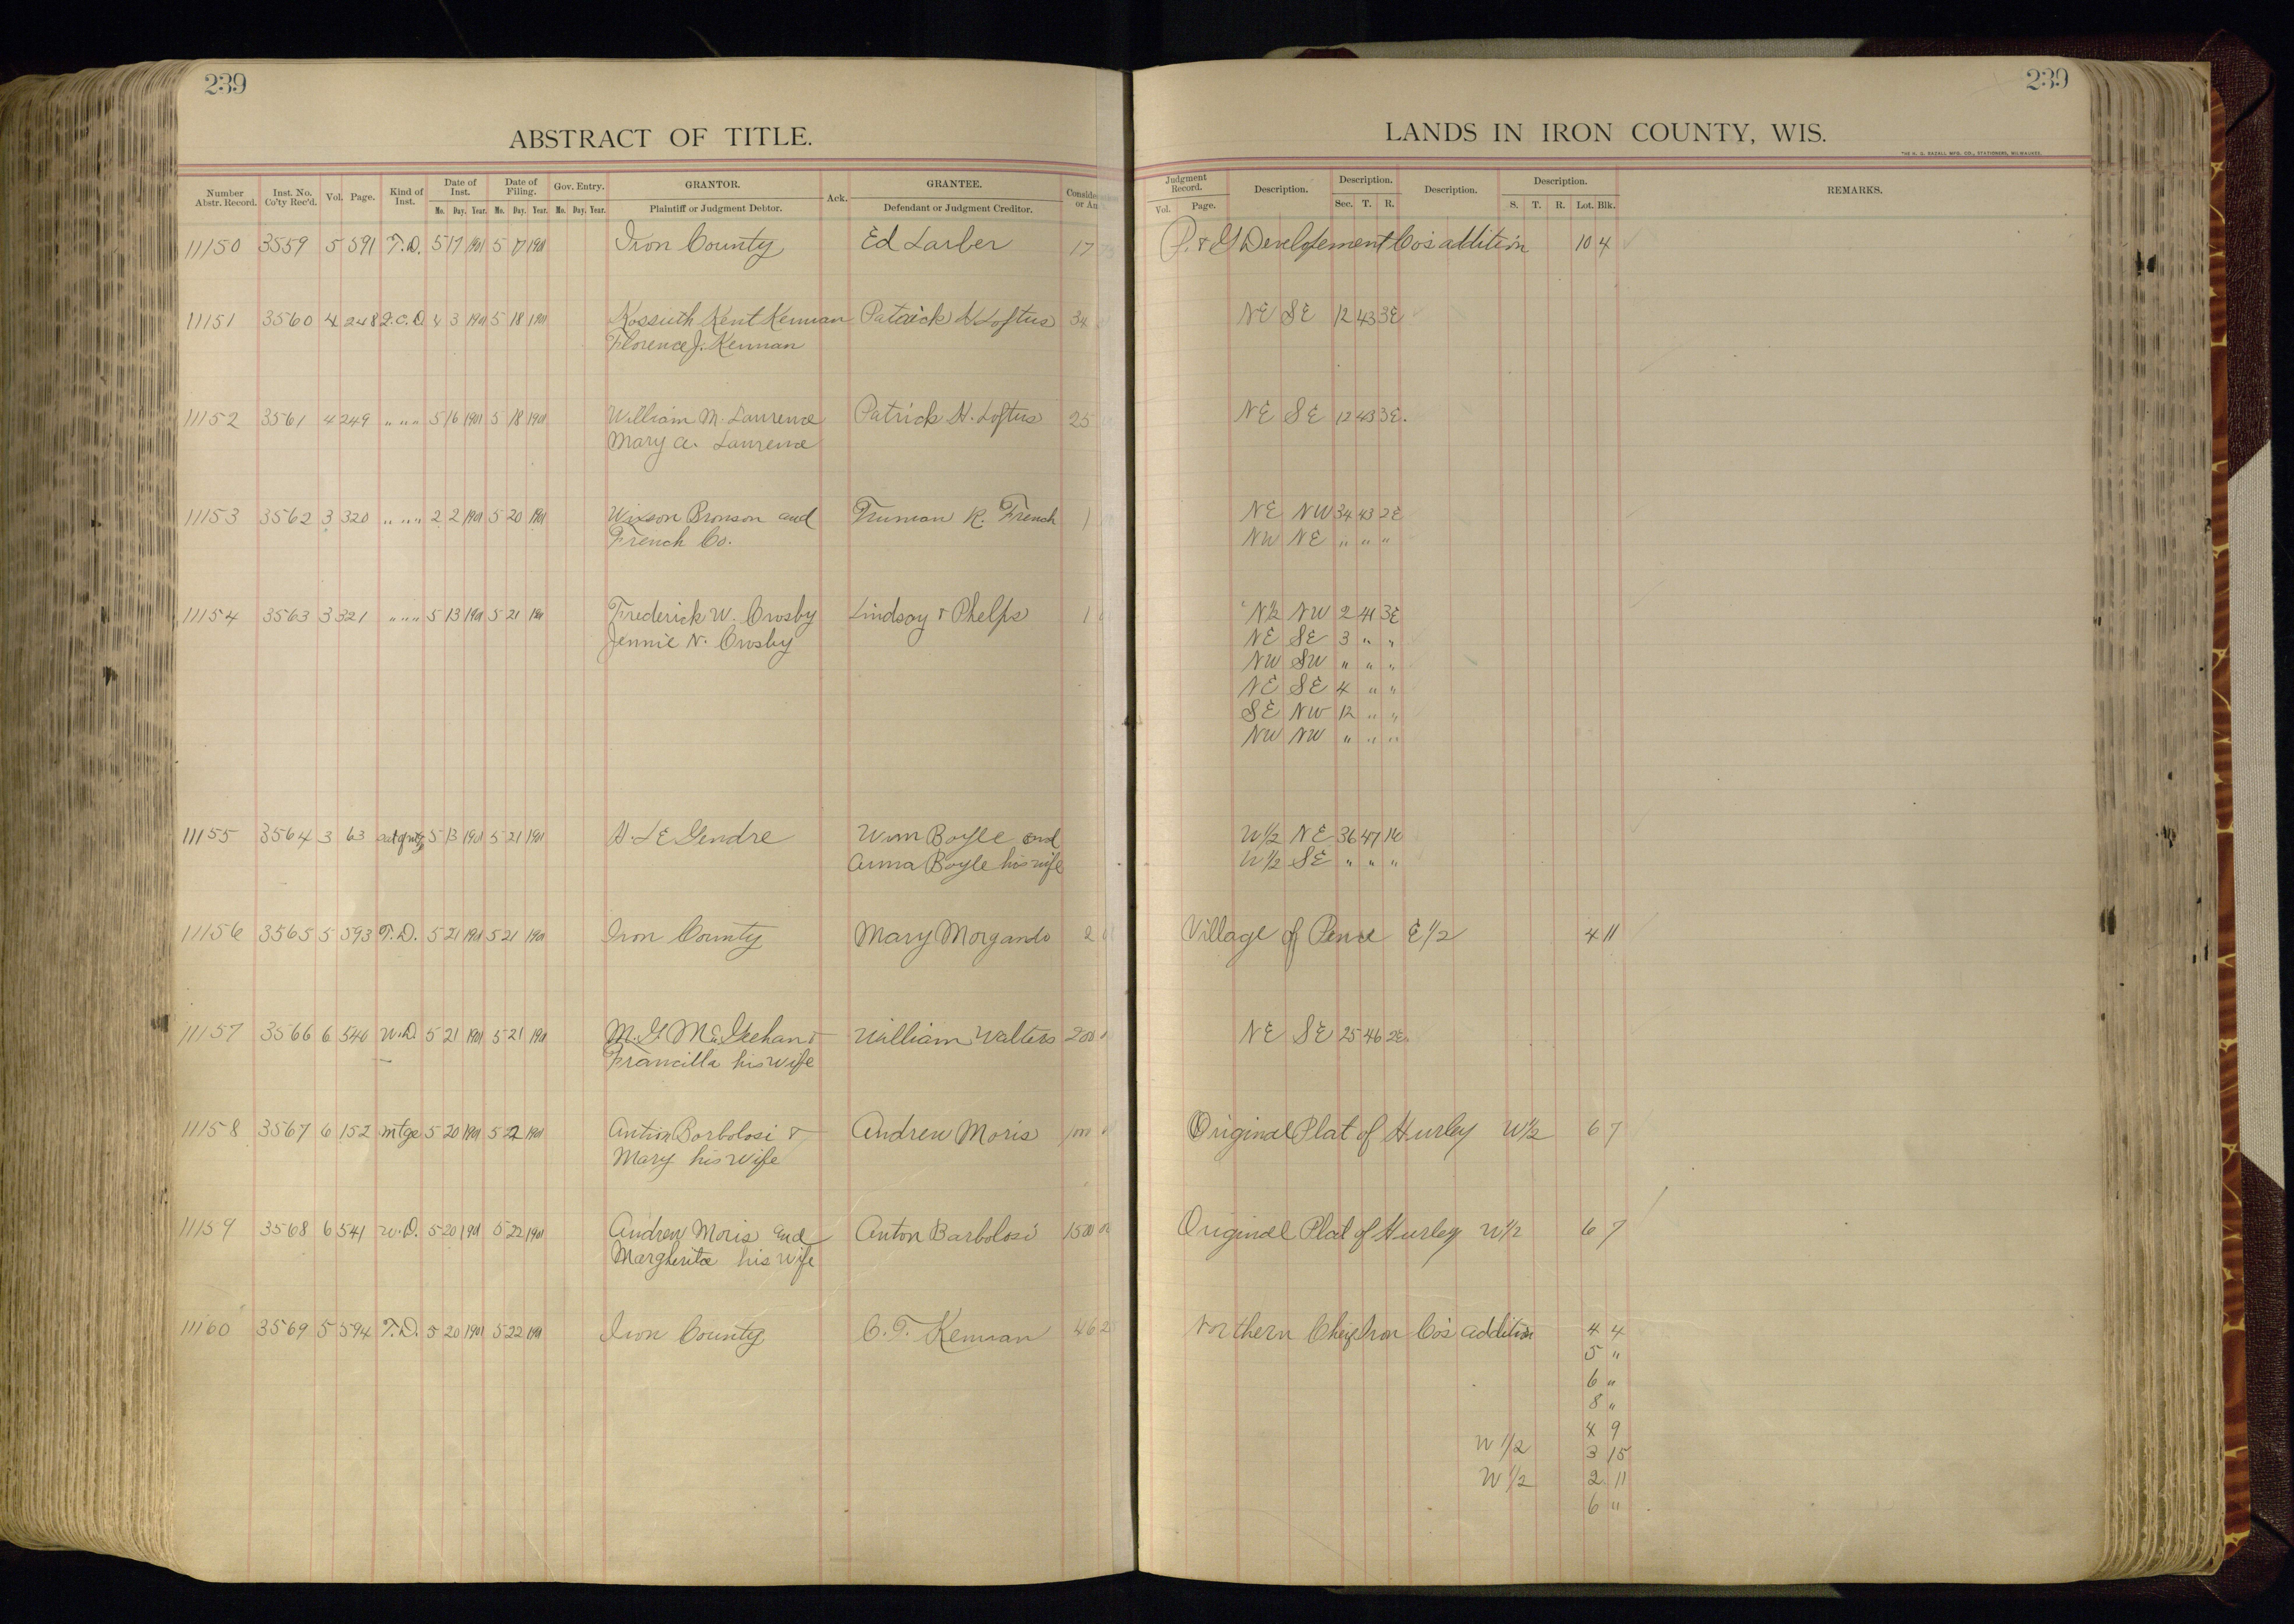 239
ABSTRACT OF TITLE.
Number Abstr. Record. Inst. No. Co'ty Rec'd. Vol. Page. Kind of Inst. Date of Inst. Mo. Day. Year. Date of Filing. Mo. Day. Year. Gov. Entry. Mo. Day. Year. GRANTOR. Plaintiff or Judgment Debtor. Ack. GRANTEE. Defendant or Judgment Creditor.
11150 3559 5 591 T.D. 5 17 1901 5 17 1901 Iron County Ed Larber 17
11151 3560 4 248 Q.C.D 4 3 1901 5 18 1901 Kossuth Kent Kennan Patrick H Loftus 34
Florence J. Kennan
11152 3561 4 249 " " " 5 16 1901 5 18 1901 William M. Laurence Patrick H. Loftus 25
Mary A. Laurence
11153 3562 3 320 " " " 2 2 1901 5 20 1901 Wixson Bronson and Truman R. French 1
French Co.
11154 3563 3 321 " " " 5 13 1901 5 21 1901 Frederick W. Crosby Lindsay & Phelps 1
Jennie N. Crosby
11155 3564 3 63 5 13 1901 5 21 1901 H. LE Gendre Wm Boyle and
Anna Boyle his wife
11156 3565 5 593 T.D. 5 21 1901 5 21 1901 Iron County Mary Morgando 2
11157 3566 6 540 W.D. 5 21 1901 5 21 1901 M.G. McGeehan & William Walters 200
Francilla his wife
11158 3567 6 152 mtge 5 20 1901 5 22 1901 Anton Barbolosi & Andrew Moris 1000
Mary his wife
11159 3568 6 541 W.D. 5 20 1901 5 22 1901 Andrew Moris and Anton Barbolosi 1500 00
Margherita his wife
11160 3569 5 594 T.D. 5 20 1901 5 22 1901 Iron County C.T. Kennan 46
239
LANDS IN IRON COUNTY, WIS.
THE H. G. RAZALL MFG. CO., STATIONERS, MILWAUKEE.
Judgment Record. Vol. Page. Description. Description. Sec. T. R. Description. Description. S. T. R. Lot. Blk. REMARKS.
P. & G Developement Co's addition 10 4
NE SE 12 43 3E
NE SE 12 43 3E.
NE NW 34 43 2E
NW NE " " "
N1/2 NW 2 41 3E
NE SE 3 " "
NW SW " " "
NE SE 4 " "
SE NW 12 " "
NW NW " " "
W1/2 NE 36 47 1E
W1/2 SE " " "
Village of Pence E1/2 4 11
NE SE 25 46 2E.
Original Plat of Hurley W1/2 6 7
Original Plat of Hurley W1/2 6 7
Northern Iron Co's addition 4 4
5 "
6 "
8 "
4 9
W 1/2 3 15
W 1/2 2 11
6 "